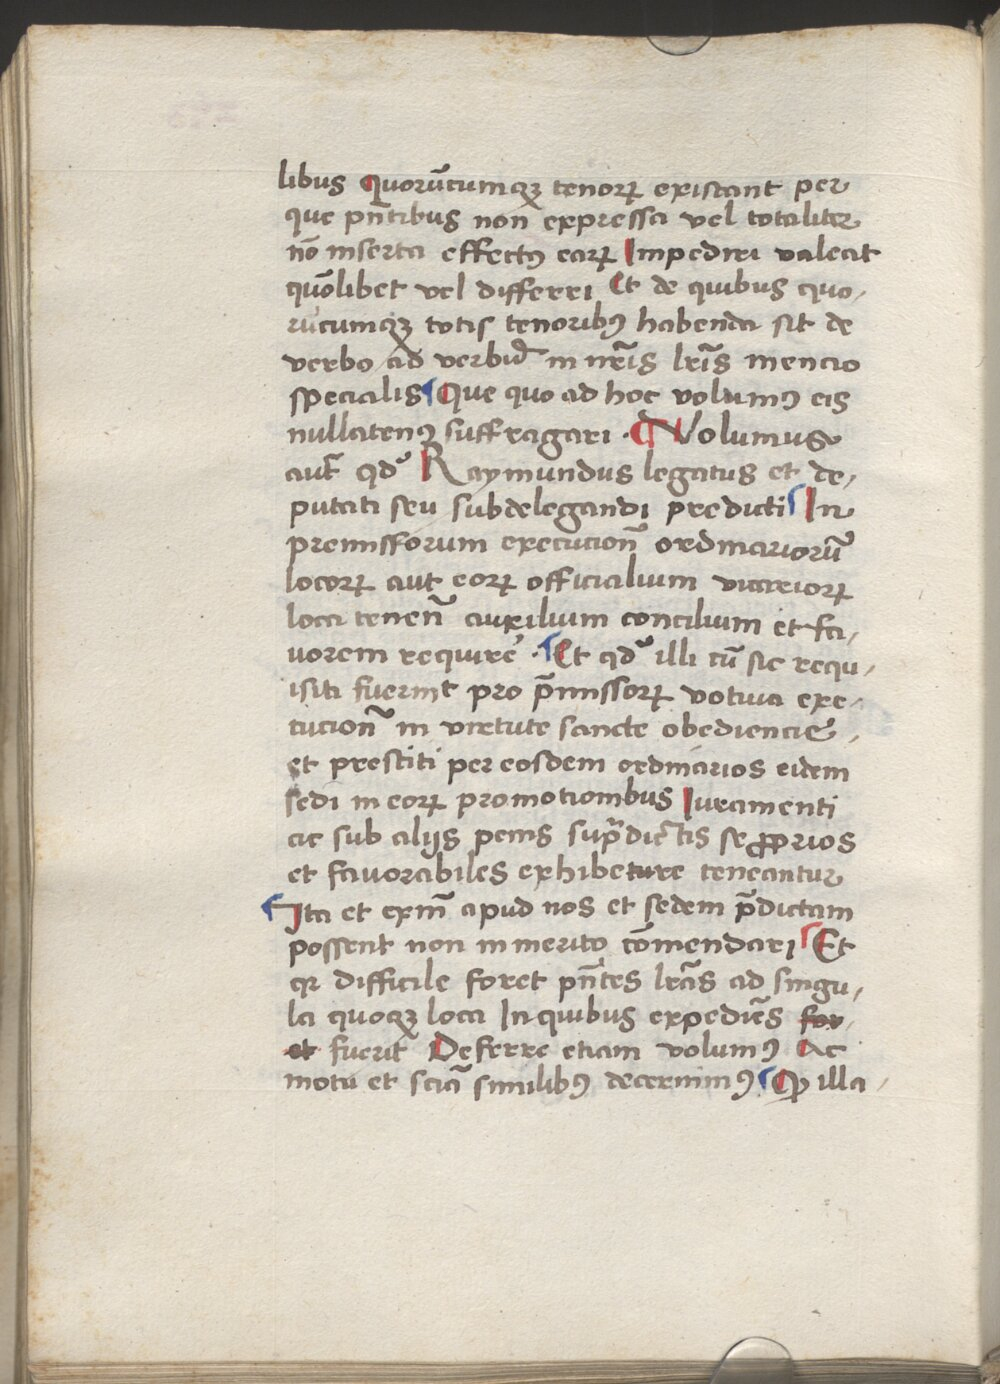 libus Quorūcumqꝫ tenorꝝ existant per
que pn̄tibus non expressa vel totaliter
nō inserta effectꝰ earꝝ Impediri valeat
quōlibet vel differri Et de quibus quo-
rūcumqꝫ totis tenoribꝰ habenda sit de
verbo ad verbū in nr̄is lr̄is mencio
specialis Que quo ad hoc volumꝰ eis
nullatenꝰ suffragari . Volumus
aut̄ qd Raymundus legatus et de-
putati seu subdelegandi predicti In
premissorum execucion̄ ordinariorū
locorꝝ aut eorꝝ officialium vicariorꝝ
loca tenen̄ auxilium concilium et fa-
uorem requirē . Et qd illi cū sic requ-
isiti fuerint pro p̄missorꝝ votiua exe-
cucion̄ in virtute sancte obediencie
et prestiti per eosdem ordinarios eidem
sedi in eorꝝ promotionibus Iuramenti
ac sub alijs penis sup̄dictis se ꝓprios
et fauorabiles exhibeture teneantur
Ita et exin̄ apud nos et sedem p̄dictam
possent non inmerito cōmendari Et
qꝛ difficile foret pn̄tes lr̄as ad singu-
la quoqꝫ loca In quibus expediēs for-
et fuerit Deferre etiam volumꝰ Ac
motu et sciā similibꝰ decernimꝰ Ꝙ illa-